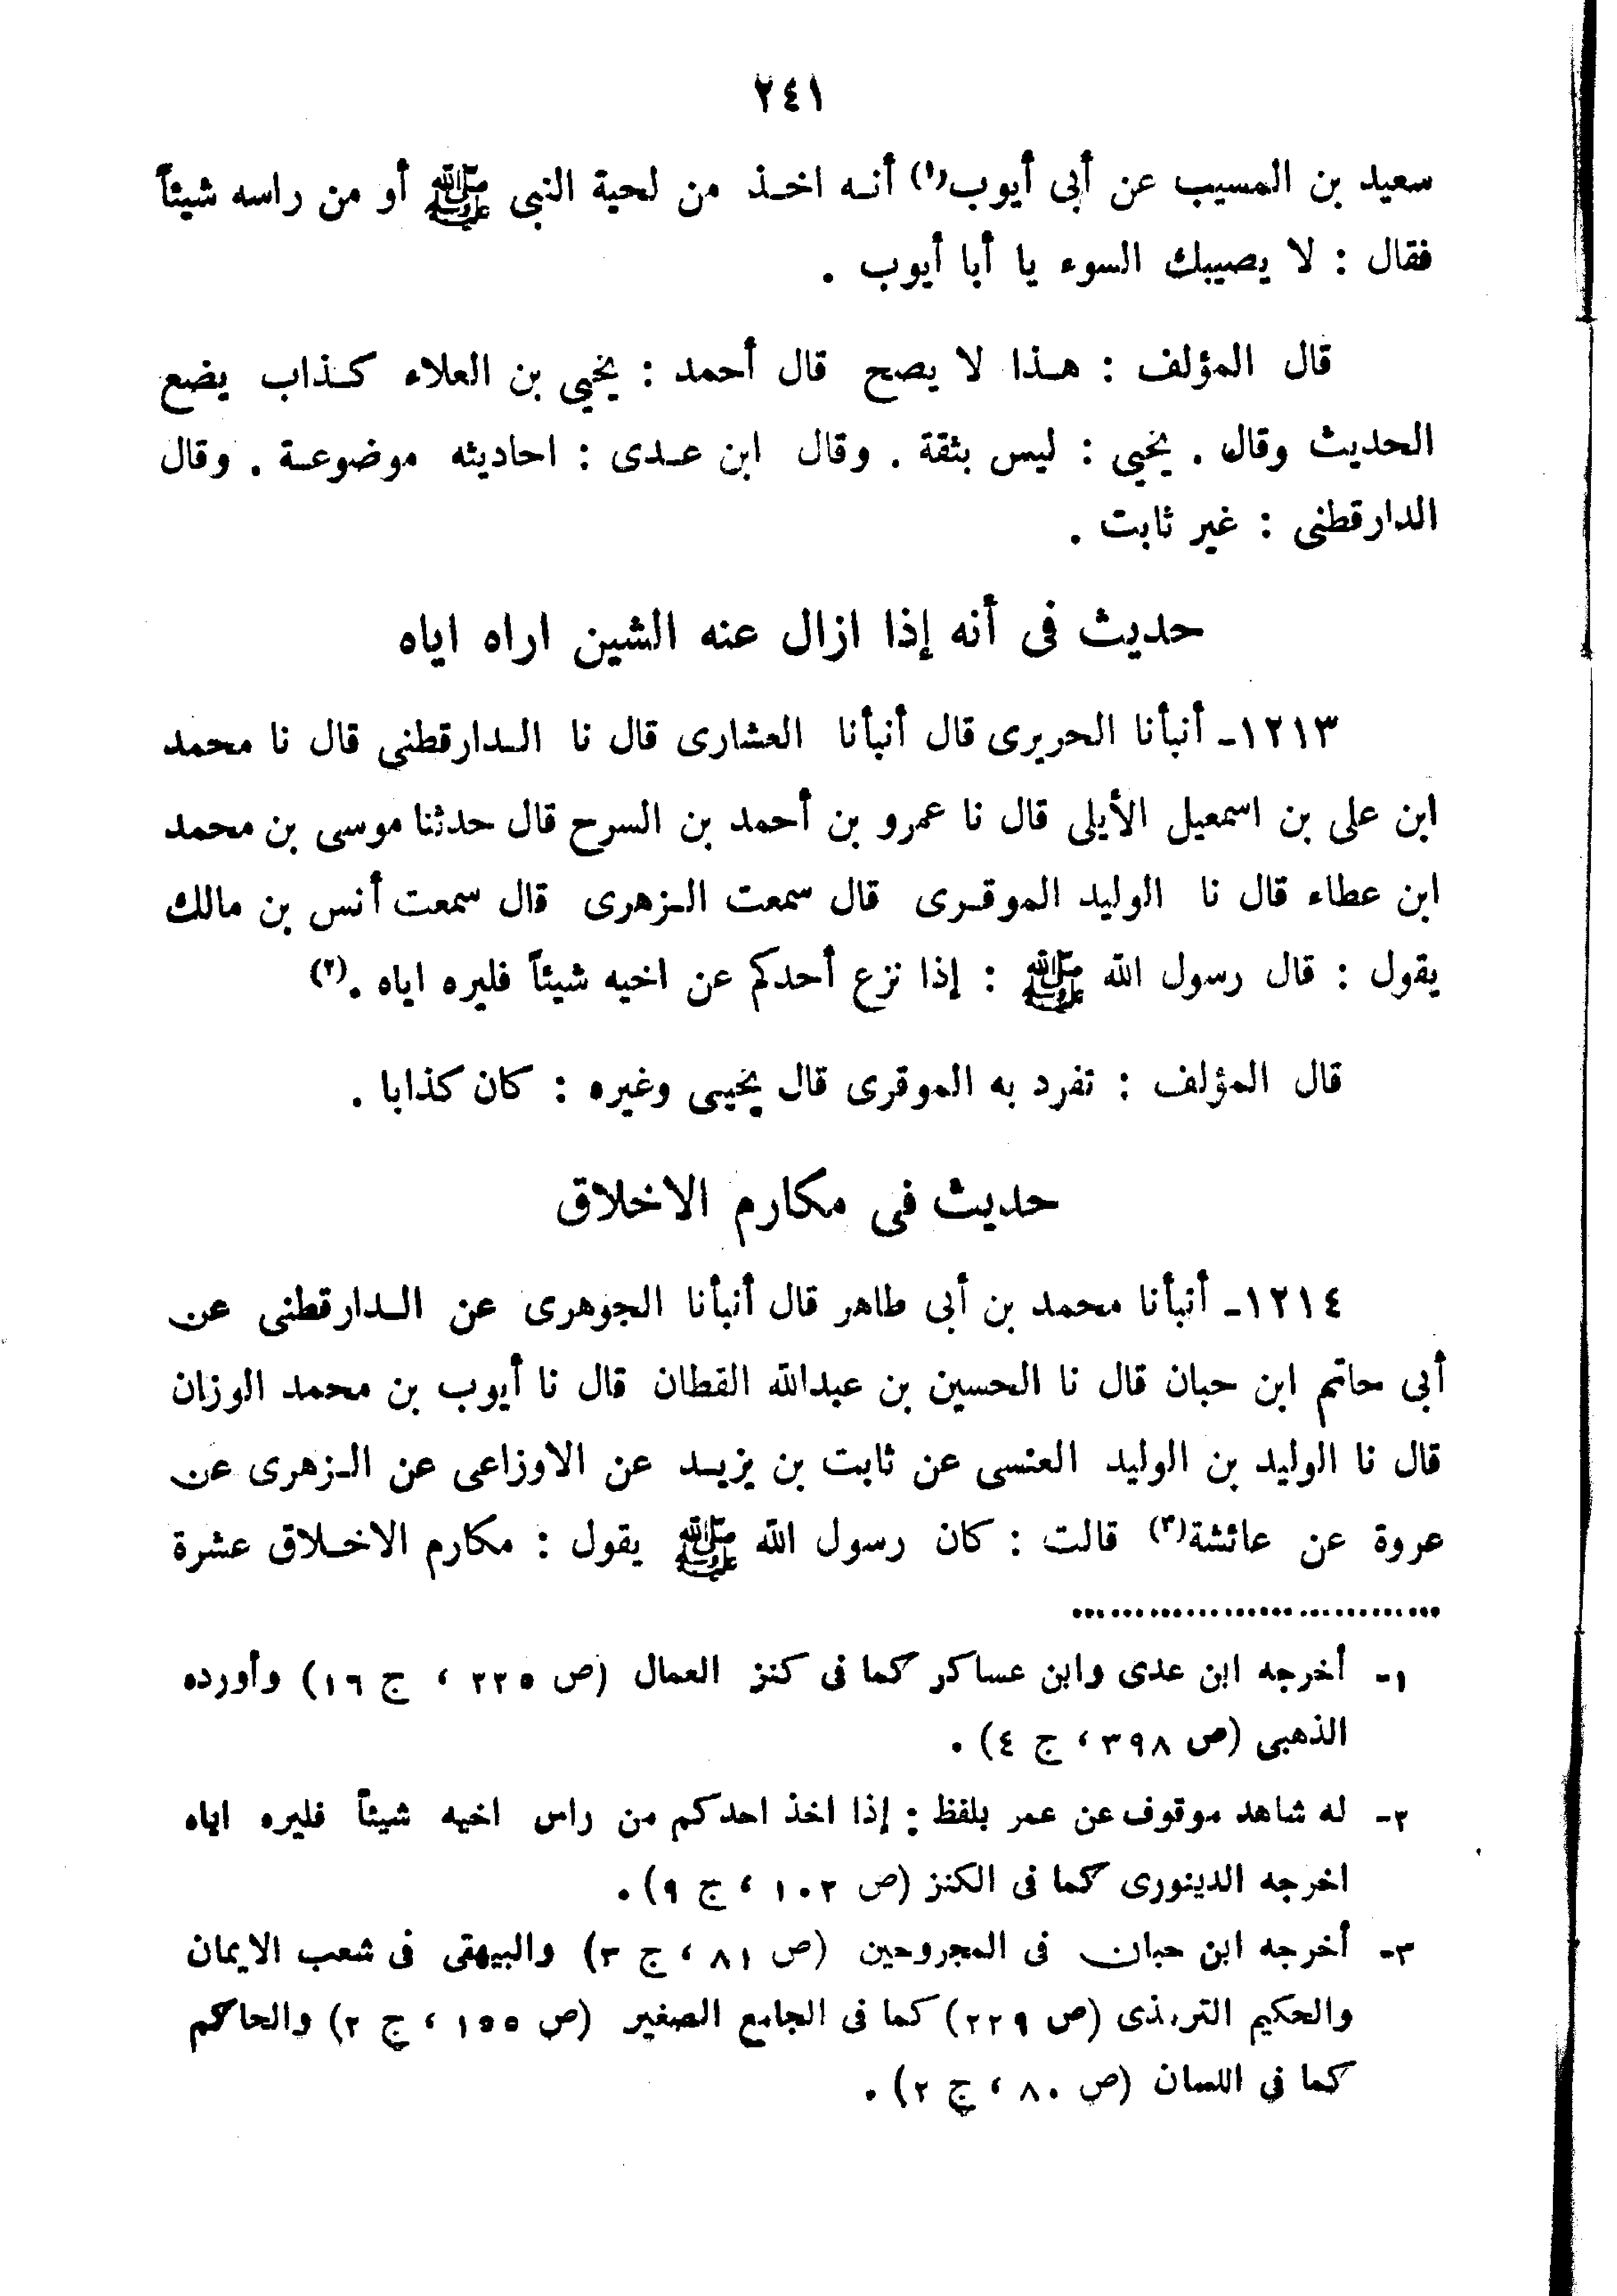 ٢٤١
سعيد بن المسيب عن أبى أيوب(١) أنـه اخـذ من لحية النبى ﷺ أو من راسه شيئاً
فقال : لا يصيبك السوء يا أبا أيوب .
قال المؤلف : هـذا لا يصح قال أحمد : يحيى بن العلاء كـذاب يضع
الحديث وقال . يحيى : ليس بثقة . وقال ابن عـدى : احاديثه موضوعـة . وقال
الدارقطنى : غير ثابت .
حديث فى أنه إذا ازال عنه الشين اراه اياه
١٢١٣ـ أنبأنا الحريرى قال أنبأنا العشارى قال نا الـدارقطنى قال نا محمد
ابن على بن اسمعيل الأيلى قال نا عمرو بن أحمد بن السرح قال حدثنا موسى بن محمد
ابن عطاء قال نا الوليد الموقـرى قال سمعت الـزهرى قال سمعت أنس بن مالك
يقول : قال رسول الله ﷺ : إذا نزع أحدكم عن اخيه شيئاً فليره اياه .(٢)
قال المؤلف : تفرد به الموقرى قال يحيى وغيره : كان كذابا .
حديث فى مكارم الاخلاق
١٢١٤ـ أنبأنا محمد بن أبى طاهر قال أنبأنا الجوهرى عن الـدارقطنى عن
أبى حاتم ابن حبان قال نا الحسين بن عبدالله القطان قال نا أيوب بن محمد الوزان
قال نا الوليد بن الوليد العنسى عن ثابت بن يزيـد عن الاوزاعى عن الـزهرى عن
عروة عن عائشة(٣) قالت : كان رسول الله ﷺ يقول : مكارم الاخـلاق عشرة
..............................
١ـ أخرجه ابن عدى وابن عساكر كما فى كنز العمال (ص ٢٣٥ ، ج ١٦) وأورده
الذهبى (ص ٣٩٨ ، ج ٤) .
٢ـ له شاهد موقوف عن عمر بلفظ : إذا اخذ احدكم من راس اخيه شيئاً فليره اياه
اخرجه الدينورى كما فى الكنز (ص ١٠٢ ، ج ٩) .
٣ـ أخرجه ابن حبان فى المجروحين (ص ٨١ ، ج ٣) والبيهقى فى شعب الايمان
والحكيم الترمذى (ص ٢٢٩) كما فى الجامع الصغير (ص ١٥٥ ، ج ٢) والحاكم
كما فى اللسان (ص ٨٠ ، ج ٢) .